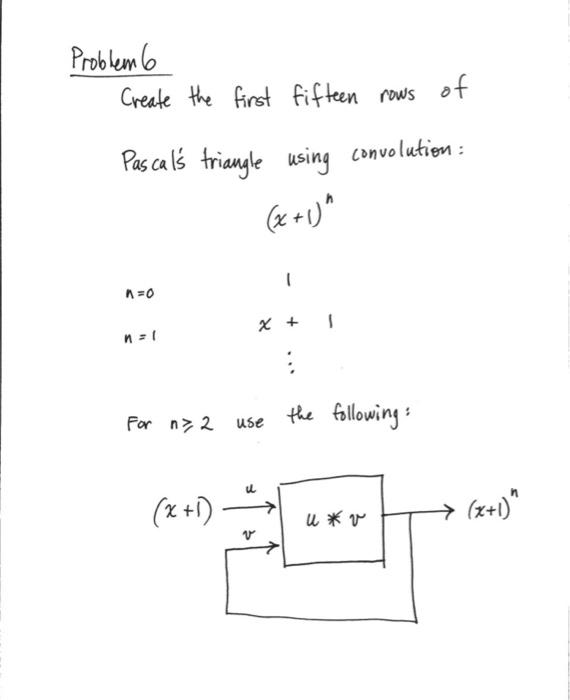 Problem 6
Create the first fifteen rows of
Pascal's triangle using convolution:
(x+1)^n
n=0 1
n=1 x + 1
⋮
For n≥2 use the following:
(x+1) u v u * v (x+1)^n